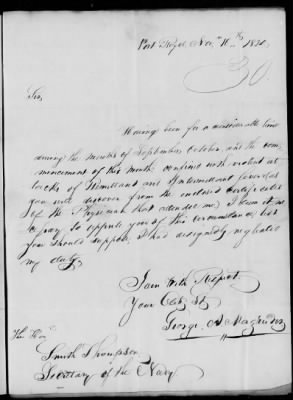 Port Royal, Nov. 16th 1820
30
Sir,
Having been for a considerable time
during the months of September October, and the com-
mencement of this month, confined with violent at-
tacks of Remittant and Intermittant fever (as
you will discover from the enclosed Certificates
of the Physician that attended me) I deem it ne-
cessary to apprize you of this circumstance, lest
you should suppose, I had designedly neglected
my duty.
I am with Respect
Your Obt. St.
George A. Magruder
The Hon.
Smith Thompson,
Secretary of the Navy.